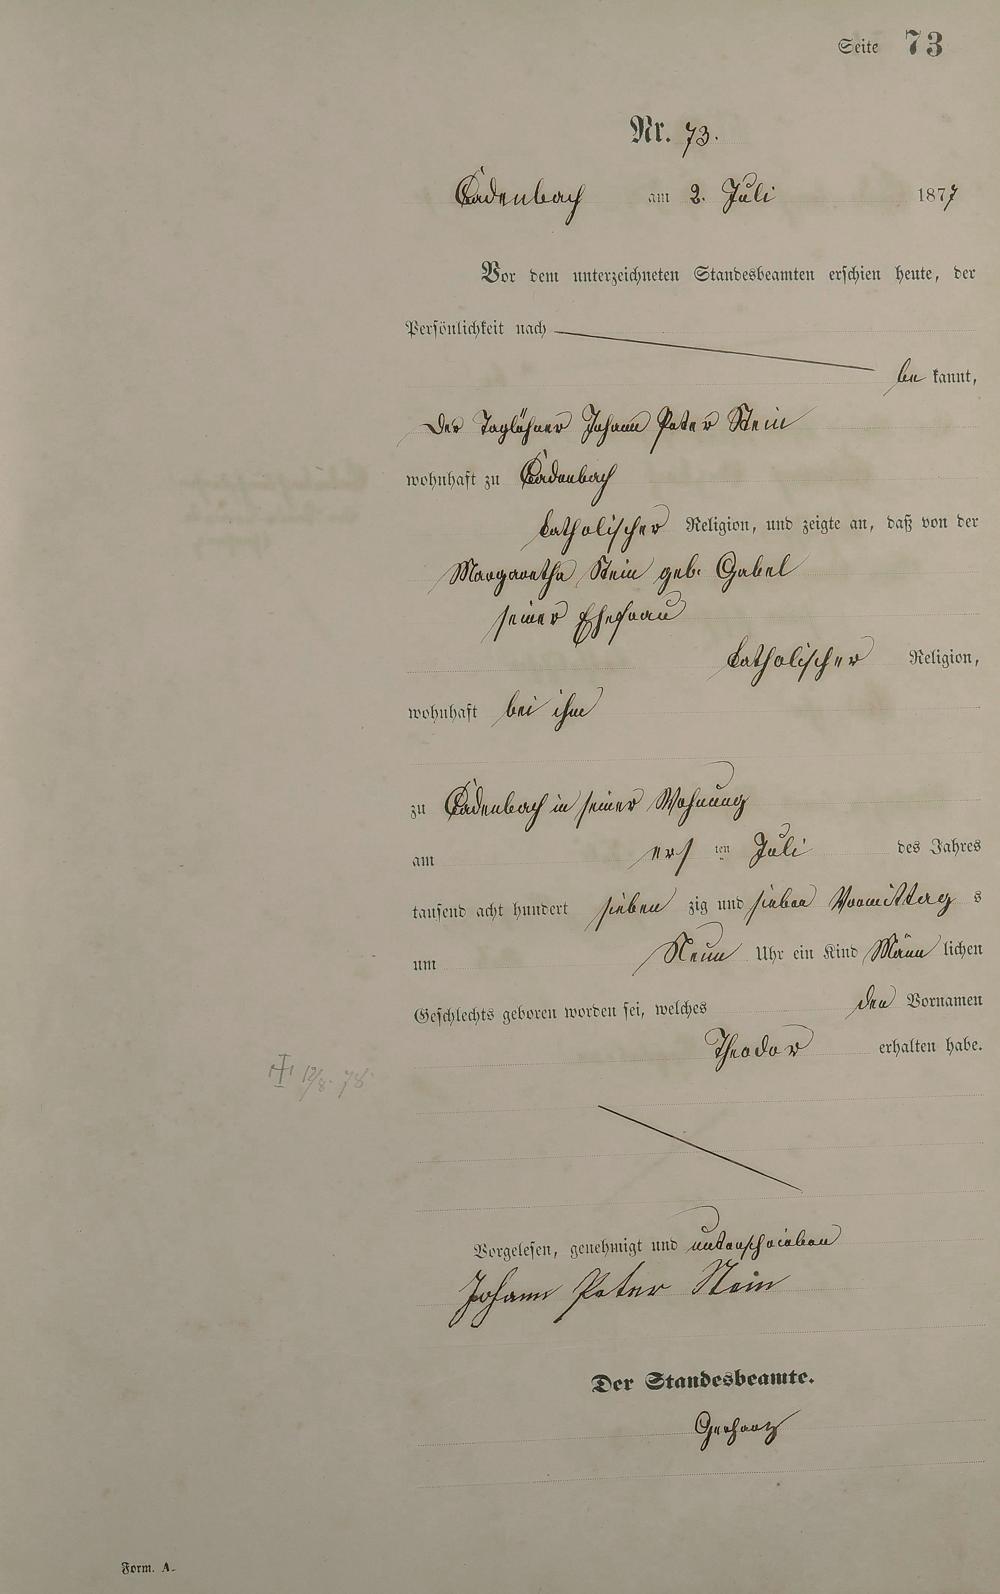 Seite 73
Nr. 73.
Cadenbach am 2. Juli 1877
Vor dem unterzeichneten Standesbeamten erschien heute, der
Persönlichkeit nach
be kannt,
der Taglöhner Johann Peter Stein
wohnhaft zu Cadenbach
katholischer Religion, und zeigte an, daß von der
Margaretha Stein geb. Gabel
seiner Ehefrau
katholischer Religion,
wohnhaft bei ihm
zu Cadenbach in seiner Wohnung
am ers ten Juli des Jahres
tausend acht hundert sieben zig und sieben Vormittag s
um Neun Uhr ein Kind Männ lichen
Geschlechts geboren worden sei, welches den Vornamen
Theodor erhalten habe.
12/8. 78.
Vorgelesen, genehmigt und unterschrieben
Johann Peter Stein
Der Standesbeamte.
Gerharz
Form. A.